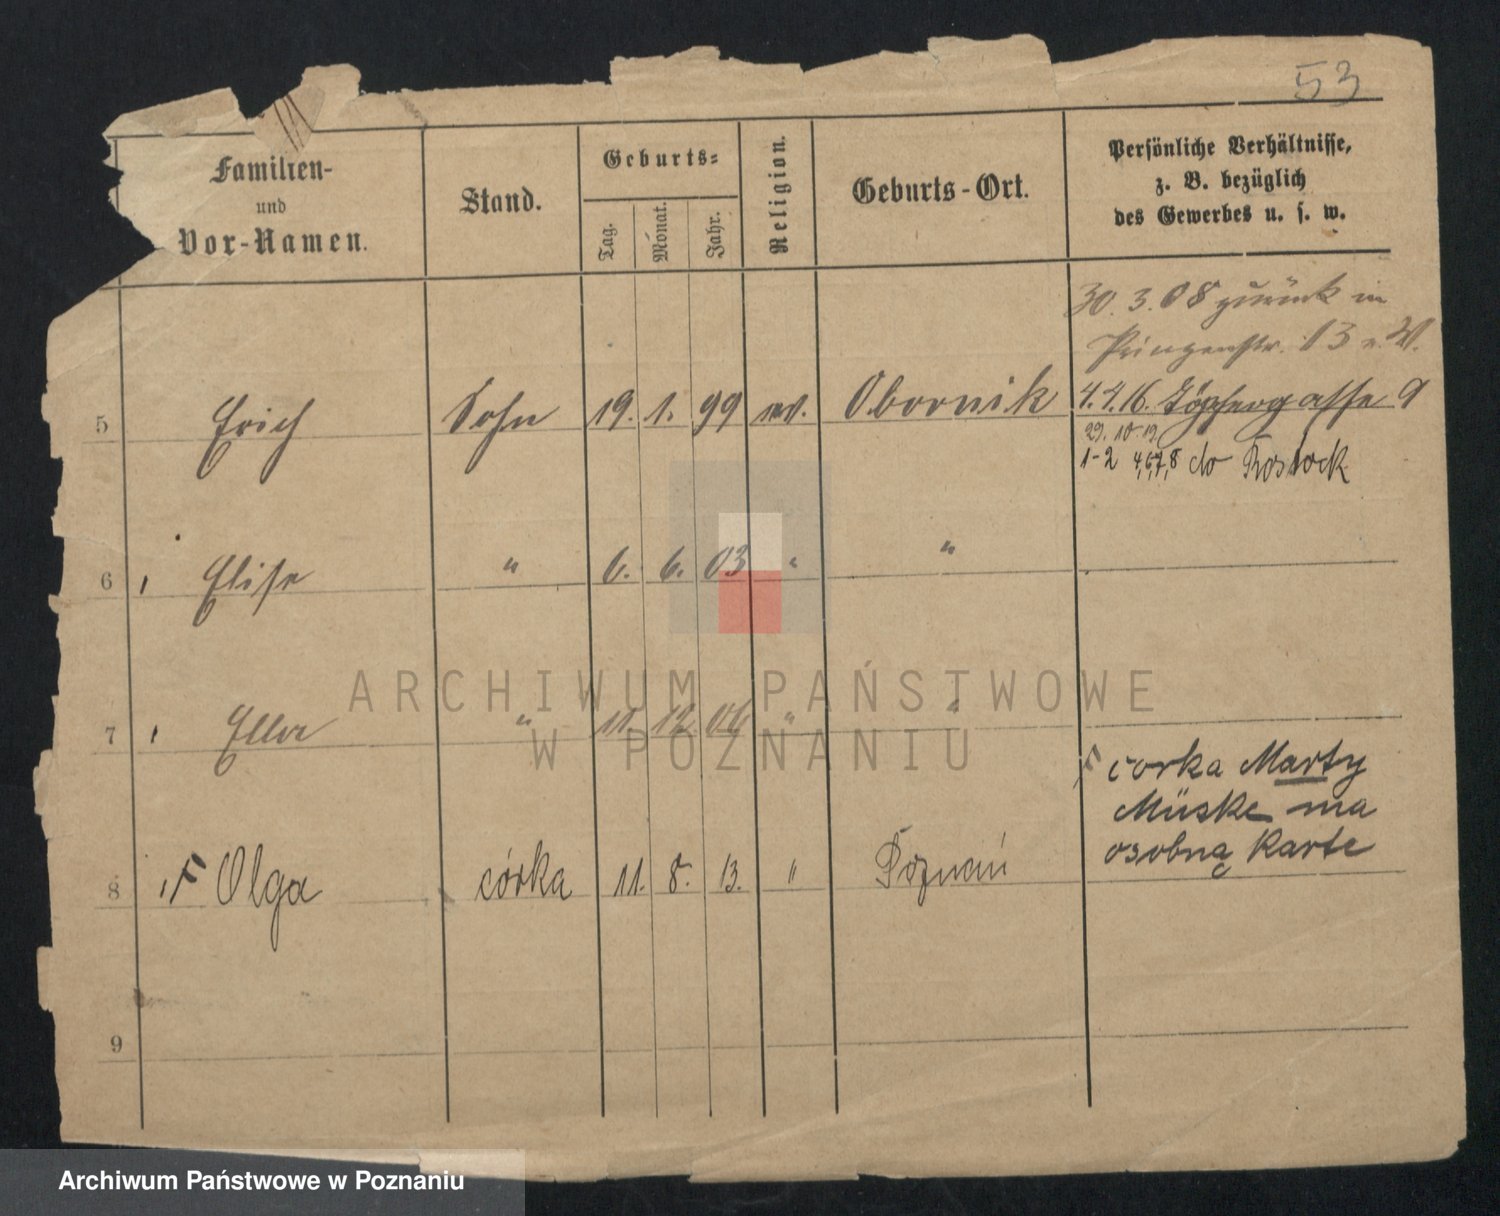 53
Familien-
und
Vor-Namen.
Stand.
Geburts=
Tag.
Monat.
Jahr.
Religion.
Geburts-Ort.
Persönliche Verhältnisse,
z. B. bezüglich
des Gewerbes u. s. w.
30. 3. 08 zurück in
Prinzenstr. 13 W.
5 Erich Sohn 19. 1. 99 ev. Obornik 4. 4. 16. Töpfergasse 9
29. 10. 19.
1-2 4,6,7,8 do Rostock
6 Elise " 6. 6. 03 " "
7 Ella " 11. 12. 06 " "
F corka Marty
Müske ma
osobną Karte
8 F Olga córka 11. 8. 13. " Poznań
9
ARCHIWUM PAŃSTWOWE
W POZNANIU
Archiwum Państwowe w Poznaniu